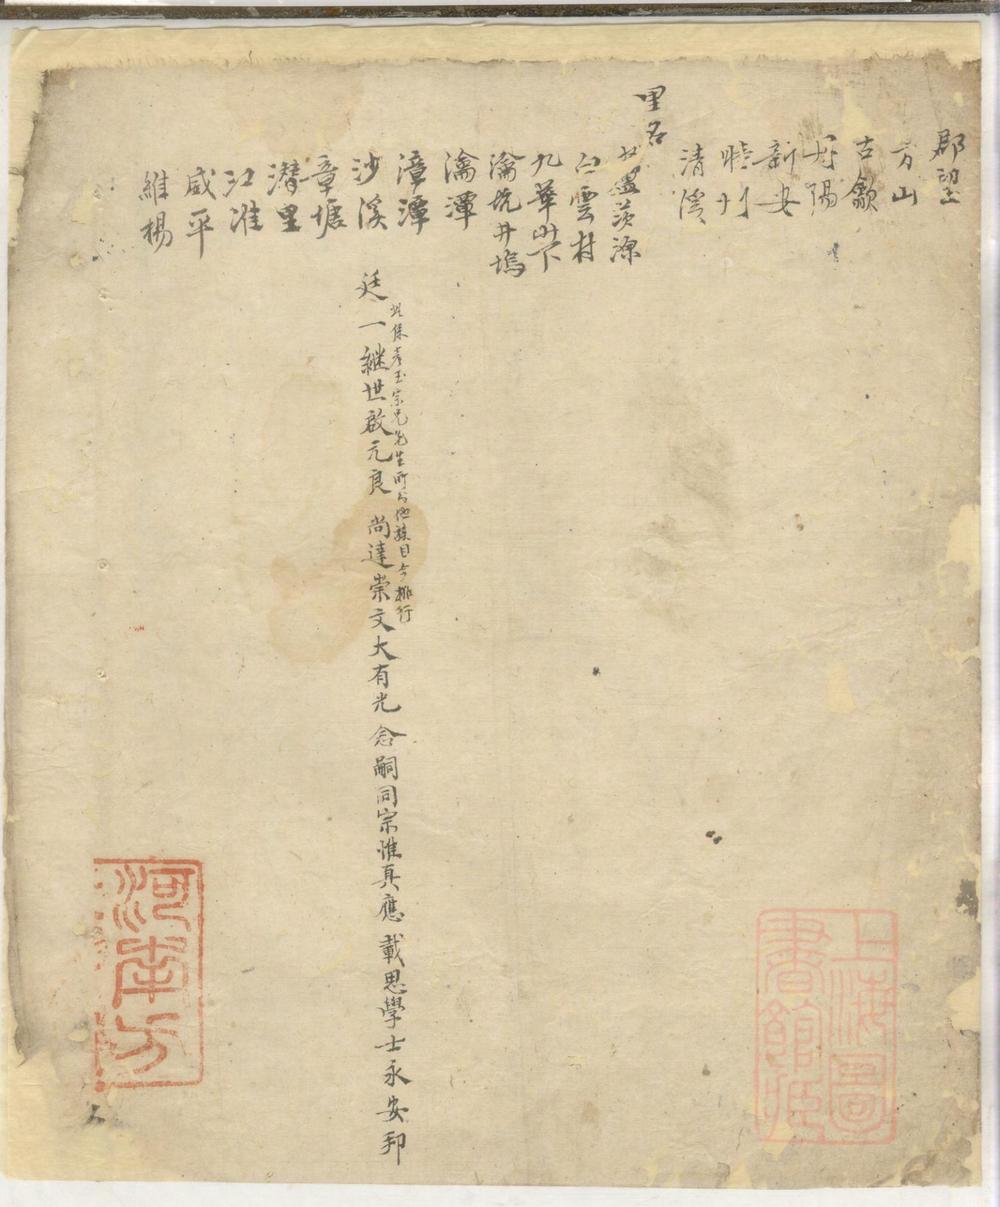 郡望
方山
古歙
丹陽
新安
睦州
清溪
里名
茨源
白雲村
九華山下
瀹坑井塢
瀹潭
漳潭
沙溪
章塘
潛里
江淮
咸平
維楊
此保彥玉宗兄先生所分他族目今排行
廷一繼世啟元良 尚達崇文大有光 念嗣同宗惟真應 載思學士永安邦
河南方
上海圖書館藏